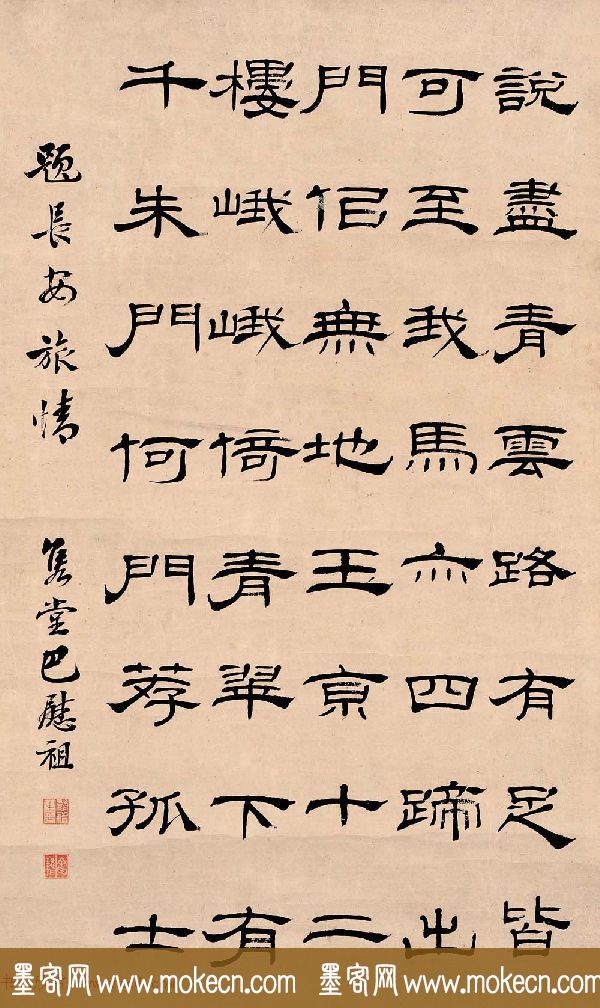 說盡青雲路有足皆
可至我馬亦四蹄出
門佀無地王亰十二
樓峨峨倚青翠下有
千朱門何門荐孤士
題長安旅情 雋堂巴慰祖
墨客网 www.mokecn.com 墨客网 www.mokecn.com